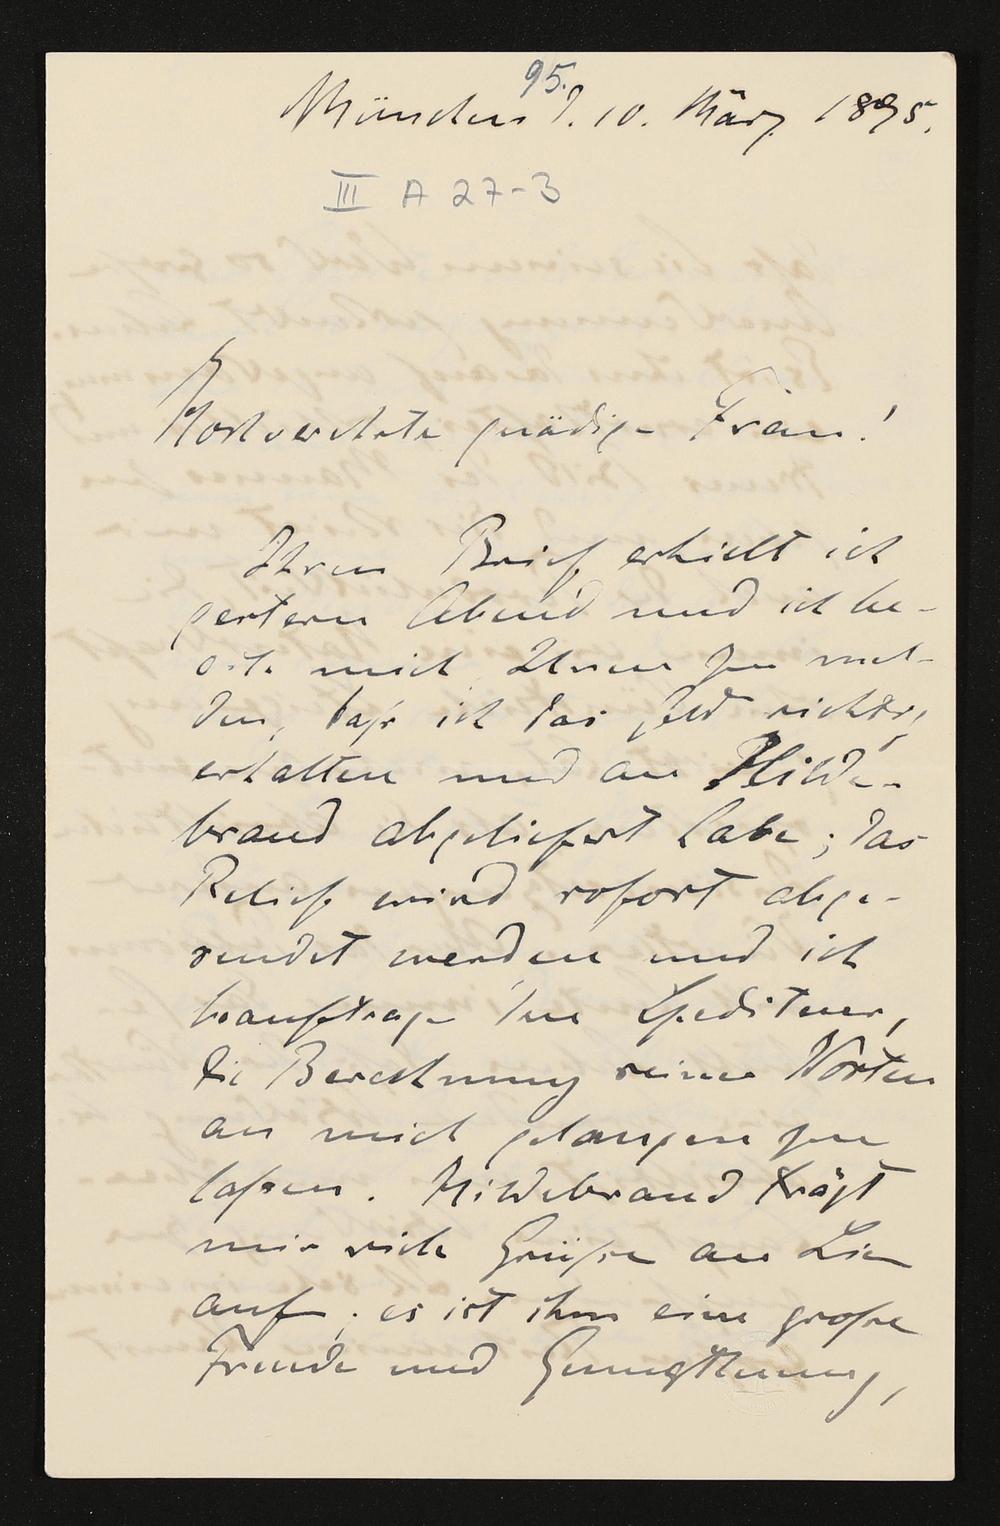 95.
München d. 10. März 1895.
III A 27-3
Hochverehrte gnädige Frau!
Ihren Brief erhielt ich
gestern Abend und ich be-
eile mich Ihnen zu mel-
den, daß ich das Geld richtig
erhalten und an Hilde-
brand abgeliefert habe; das
Relief wird sofort abge-
sendet werden und ich
beauftrage den Spediteur,
die Berechnung seiner Kosten
an mich gelangen zu
laßen. Hildebrand trägt
mir viele Grüße an Sie
auf; es ist ihm eine große
Freude und Genugthuung,